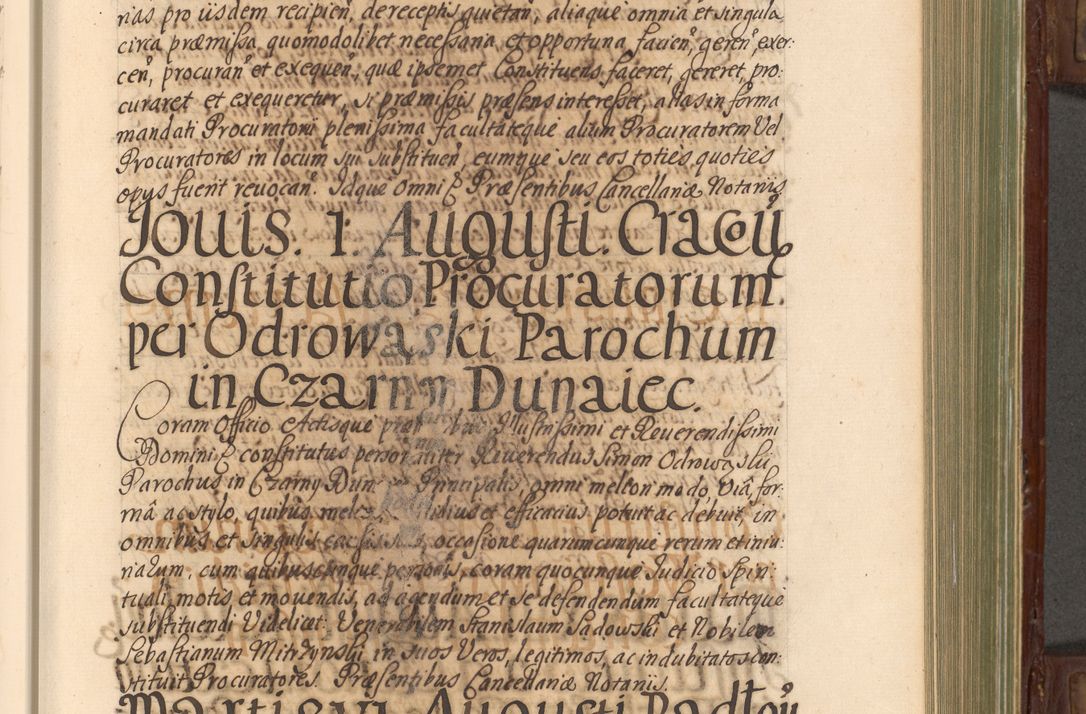 rias pro iisdem recipien̄, de receptis quietan̄, aliaque omnia et singula
circa præmissa quomodolibet necessaria et opportuna facien̄, geren̄, exer-
cen̄, procuran̄ et exequen̄, quæ ipsemet Constituens faceret, gereret, pro-
curaret et exequeretur, si præmissis præsens interesset, alias in forma
mandati Procuratorii plenissima facultateque alium Procuratorem Vel
Procuratores in locum sui substituen̄, eumque seu eos toties quoties
opus fuerit reuocan̄. Idque omni Præsentibus Cancellariæ Notariis
Jouis. 1. Augusti. Cracoviæ
Constitutio Procuratorum
per Odrowąski Parochum
in Czarny Dunaiec.
Coram Officio Actisque Illustrissimi et Reuerendissimi
Domini constitutus personaliter Reuerendus Simon Odrowąski
Parochus in Czarny Principalis, omni meliori modo, Viâ, for-
mâ ac stylo, quibus et efficacius potuit ac debuit, in
omnibus et singulis causis suis, occasione quarumcunque rerum et iniu-
riarum, cum quibuscunque personis, coram quocunque Judicio Spiri-
tuali, motis et mouendis, ad agendum et se defendendum facultateque
substituendi Videlicet: Venerabilem Stanislaum Sadowski et Nobilem
Sebastianum Mitrzynski in suos Veros, legitimos, ac indubitatos con-
stituit Procuratores. Præsentibus Cancellariæ Notariis.
Martis VI Augusti Radłoviæ